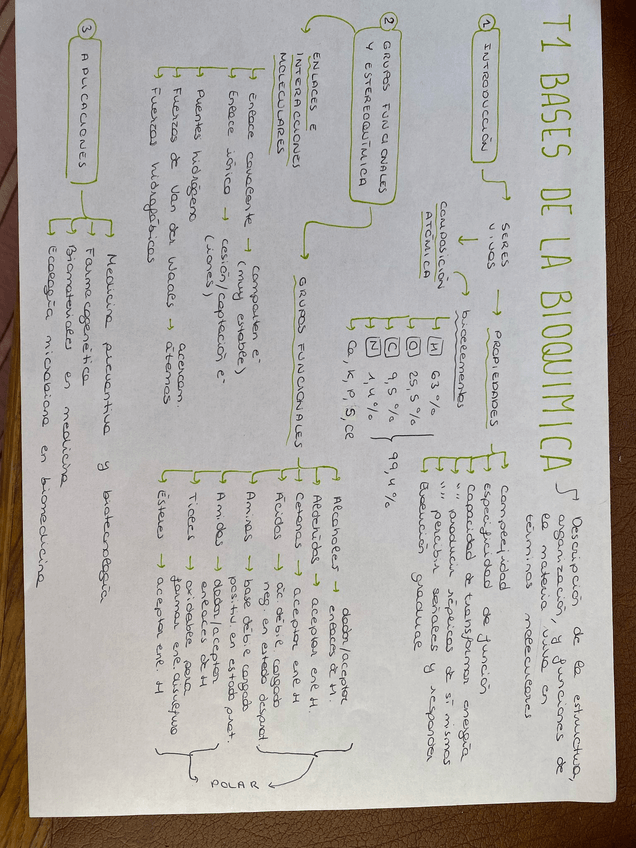 T1 BASES DE LA BIOQUIMICA
Descripción de la estructura,
organización, y funciones de
la materia viva en
términos moleculares
1 INTRODUCCIÓN
SERES
VIVOS → PROPIEDADES
Complejidad
Especificidad de función
Capacidad de transformar energía
"" producir réplicas de sí mismos
"" percibir señales y responder
Evolución gradual
COMPOSICIÓN
ATÓMICA
bioelementos
H 63%
O 25,5%
C 9,5%
N 1,4%
99,4%
Ca, K, P, S, Cl
2 GRUPOS FUNCIONALES
Y ESTEREOQUÍMICA
ENLACES E
INTERACCIONES
MOLECULARES
Enlace covalente → comparten e-
(muy estable)
Enlace iónico → cesión/captación e-
(iones)
Puentes hidrógeno
Fuerzas de Van der Waals → acercam.
átomos
Fuerzas hidrofóbicas
GRUPOS FUNCIONALES
Alcoholes → dador/aceptor
enlaces de H.
Aldehídos → aceptor enl H.
Cetonas → aceptor enl H
Ácidos → ác. débil cargado
neg. en estado desprot
Aminas → base débil cargada
positiv. en estado prot.
Amidas → dador/aceptor
enlaces de H
Tioles → oxidable para
formar enl. disulfuro
Ésteres → aceptor enl. H
POLAR
3 APLICACIONES
Medicina preventiva y biotecnología
Farmacogenética
Biomateriales en medicina
Ecología microbiana en biomedicina